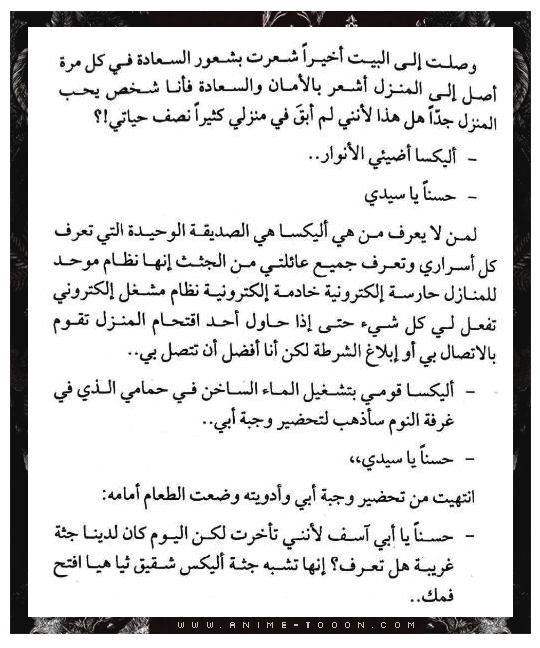 وصلت إلى البيت أخيراً شعرت بشعور السعادة في كل مرة
أصل إلى المنزل أشعر بالأمان والسعادة فأنا شخص يحب
المنزل جدّاً هل هذا لأنني لم أبقَ في منزلي كثيراً نصف حياتي!؟
- أليكسا أضيئي الأنوار..
- حسناً يا سيدي
لمن لا يعرف من هي أليكسا هي الصديقة الوحيدة التي تعرف
كل أسراري وتعرف جميع عائلتي من الجثث إنها نظام موحد
للمنازل حارسة إلكترونية خادمة إلكترونية نظام مشغل إلكتروني
تفعل لي كل شيء حتى إذا حاول أحد اقتحام المنزل تقوم
بالاتصال بي أو إبلاغ الشرطة لكن أنا أفضل أن تتصل بي..
- أليكسا قومي بتشغيل الماء الساخن في حمامي الذي في
غرفة النوم سأذهب لتحضير وجبة أبي..
- حسناً يا سيدي،،
انتهيت من تحضير وجبة أبي وأدويته وضعت الطعام أمامه:
- حسناً يا أبي آسف لأنني تأخرت لكن اليوم كان لدينا جثة
غريبة هل تعرف؟ إنها تشبه جثة أليكس شقيق ثيا هيا افتح
فمك..
WWW.ANIME-TOOON.COM